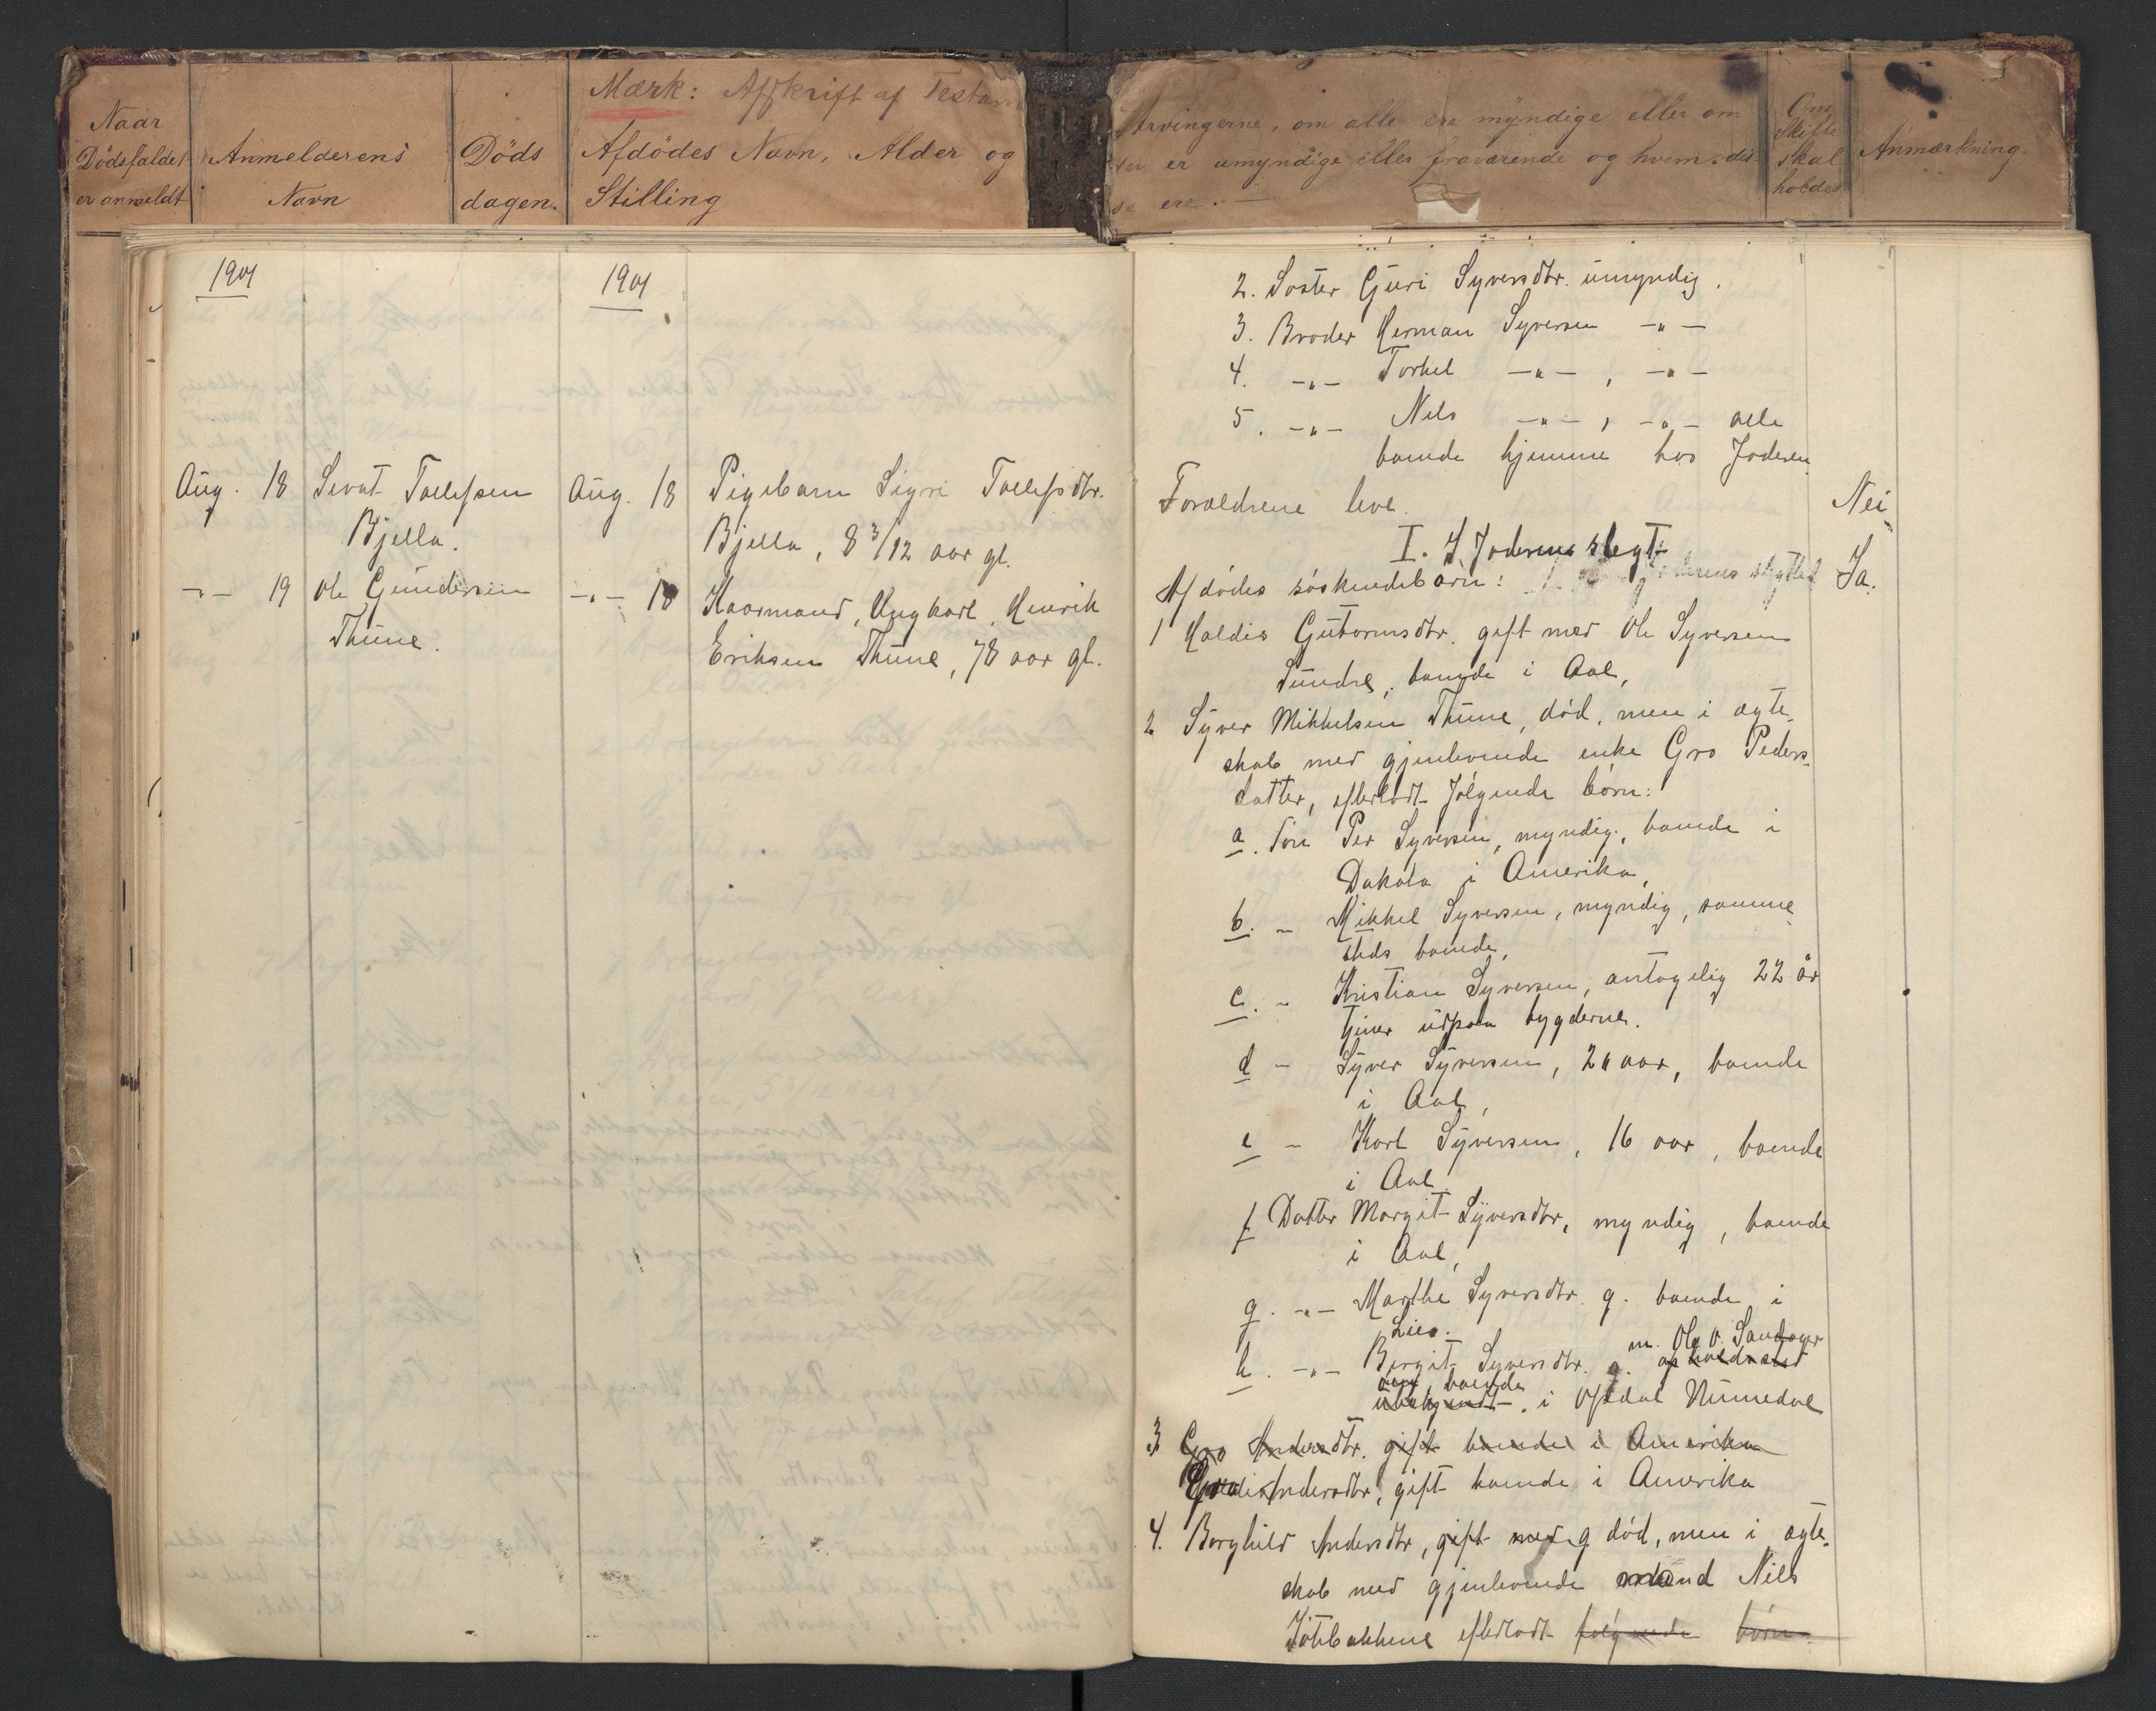 Mærk: Afskrift af Testam
Naar
Dödsfaldet
er anmeldt
Anmelderens
Navn
Döds
dagen.
Afdödes Navn, Alder og
Stilling
Arvingerne, om alle ere myndige eller om
er umyndige eller fraværende og hvem dis-
se ere. —
Om
Skifte
skal
holdes
Anmærkning.
1901
1901
Aug. 18 Sevat Tollefsen
Bjella.
Aug. 18 Pigebarn Sigri Tollefsdtr.
Bjella, 8 3/12 aar gl.
-"- 19 Ole Gundersen
Thune.
-"- 18 Kaarmand, Ungkarl, Henrik
Eriksen Thune, 78 aar gl.
2. Søster Guri Syversdtr. umyndig.
3. Broder Herman Syversen -"-
4. -"- Torkel -"-, -"-
5. -"- Nils -"-, -"- alle
boende hjemme hos faderen
Forældrene leve. Nei
I. På faderens slegt
Afdödes söskendebörn: Ja.
1 Haldis Gutormsdtr. gift med Ole Syversen
Sundre, boende i Aal,
2 Syver Mikkelsen Thune, död, men i ægte-
skab med gjenlevende enke Gro Peders-
datter, efterladt følgende børn:
a. Søn Per Syversen, myndig, boende i
Dakota i Amerika,
b. - Mikkel Syversen, myndig, samme
steds boende,
c. - Kristian Syversen, antagelig 22 år
tjener udpaa bygderne.
d - Syver Syversen, 20 aar, boende
i Aal,
e - Karl Syversen, 16 aar, boende
i Aal.
f Datter Margit Syversdtr, myndig, boende
i Aal,
g. -"- Marthe Syversdtr. g. boende i
Lier.
m. Ole O. Sandager
h. -"- Birgit Syversdtr. g. opholdssted
boende
ubekjendt. i Opdal Numedal
3 Gro Andersdtr. gift boende i Amerika
Andersdtr, gift boende i Amerika
4. Borghild Andersdtr, gift med g död, men i ægte-
skab med gjenlevende mand Nils
efterladt følgende børn.